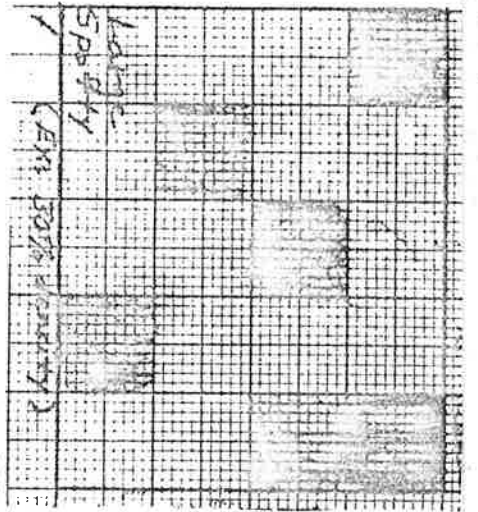 Large
Spotty
(Ex: 50% density)